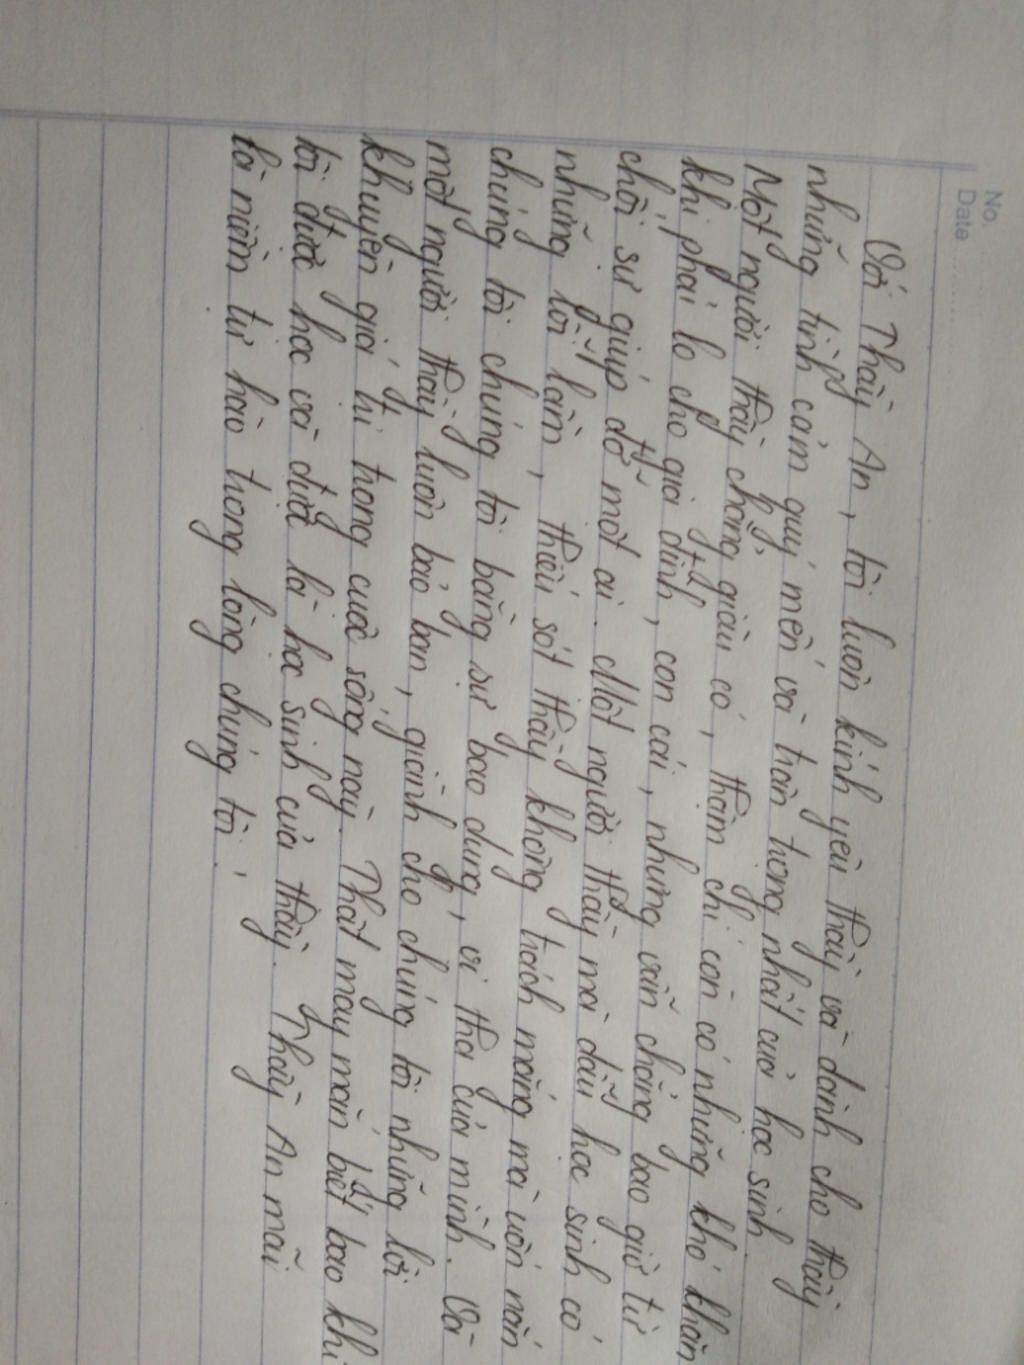 No.
Date
Với Thầy An, tôi luôn kính yêu thầy và dành cho thầy
những tình cảm quý mến và trân trọng nhất của học sinh.
Một người thầy chẳng giàu có, thậm chí còn có những khó khăn
khi phải lo cho gia đình, con cái, nhưng vẫn chẳng bao giờ từ
chối sự giúp đỡ một ai. Một người thầy mà dẫu học sinh có
những lỗi lầm, thiếu sót thầy không trách mắng mà uốn nắn
chúng tôi chúng tôi bằng sự bao dung, vị tha của mình. Và
một người thầy luôn bảo ban, giành cho chúng tôi những lời
khuyên giá trị trong cuộc sống này. Thật may mắn biết bao khi
tôi được học và được là học sinh của thầy. Thầy An mãi
là niềm tự hào trong lòng chúng tôi.